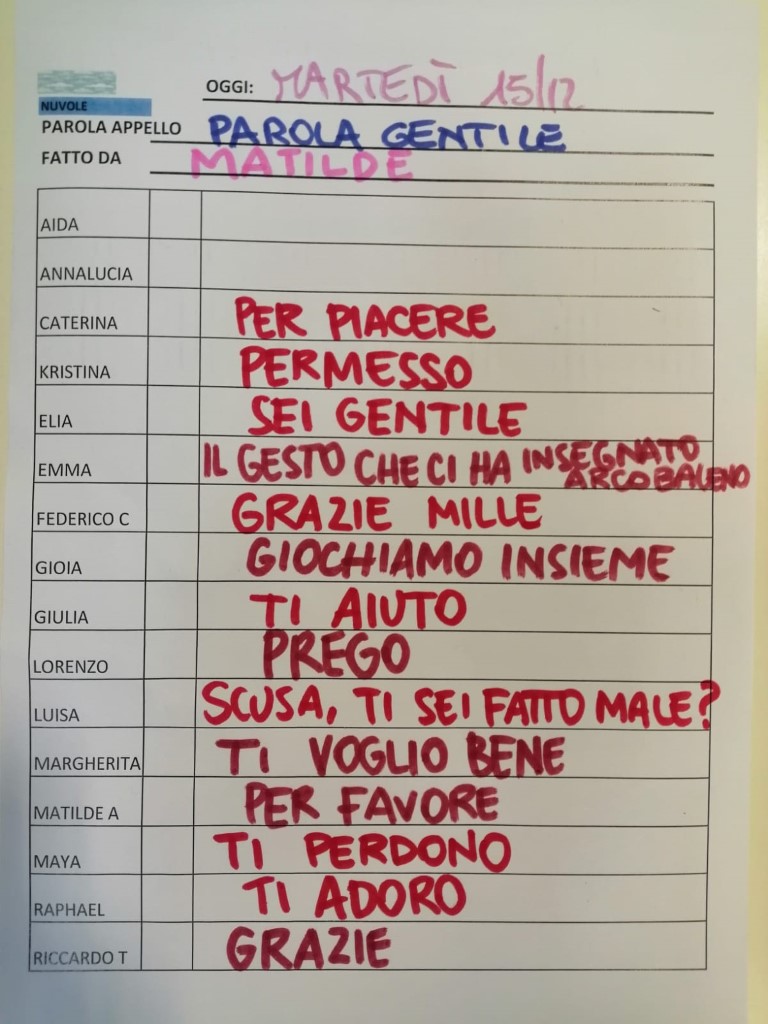 OGGI: MARTEDÌ 15/12
NUVOLE
PAROLA APPELLO PAROLA GENTILE
FATTO DA MATILDE
AIDA
ANNALUCIA
CATERINA PER PIACERE
KRISTINA PERMESSO
ELIA SEI GENTILE
EMMA IL GESTO CHE CI HA INSEGNATO
ARCOBALENO
FEDERICO C GRAZIE MILLE
GIOIA GIOCHIAMO INSIEME
GIULIA TI AIUTO
LORENZO PREGO
LUISA SCUSA, TI SEI FATTO MALE?
MARGHERITA TI VOGLIO BENE
MATILDE A PER FAVORE
MAYA TI PERDONO
RAPHAEL TI ADORO
RICCARDO T GRAZIE